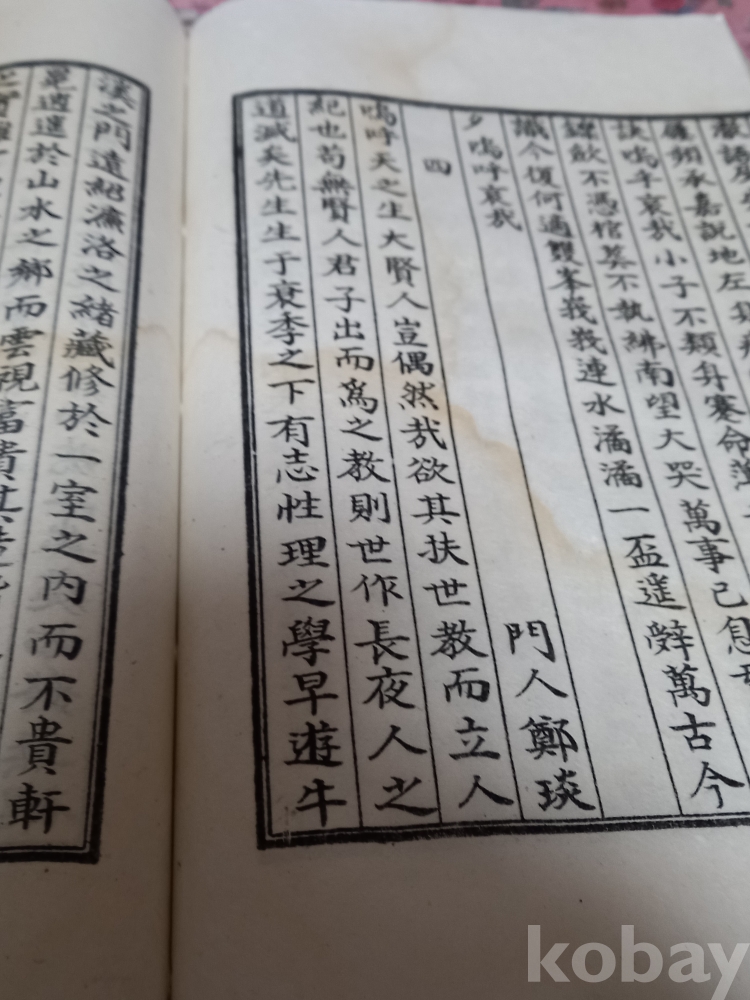 廉頑承嘉說地左
訣嗚乎哀我小子不類舛蹇命
歛不憑棺葬不執紼南望大哭萬事已
識今復何適雙峯峩峩連水潏潏一盃遥辭萬古今
夕嗚呼哀哉
四
門人鄭琰
嗚呼天之生大賢人豈偶然哉欲其扶世教而立人
紀也苟無賢人君子出而爲之教則世作長夜人之
道滅矣先生生于衰季之下有志性理之學早遊牛
溪之門遠紹濂洛之緖藏修於一室之內而不貴軒
冕逍遥於山水之鄕而雲視富貴其
kobay